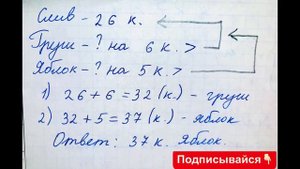 Слив - 26 к.
Груш - ? на 6 к. >
Яблок - ? на 5 к. >
1) 26 + 6 = 32 (к.) - груш
2) 32 + 5 = 37 (к.) - яблок
Ответ: 37 к. яблок.
Подписывайся👇